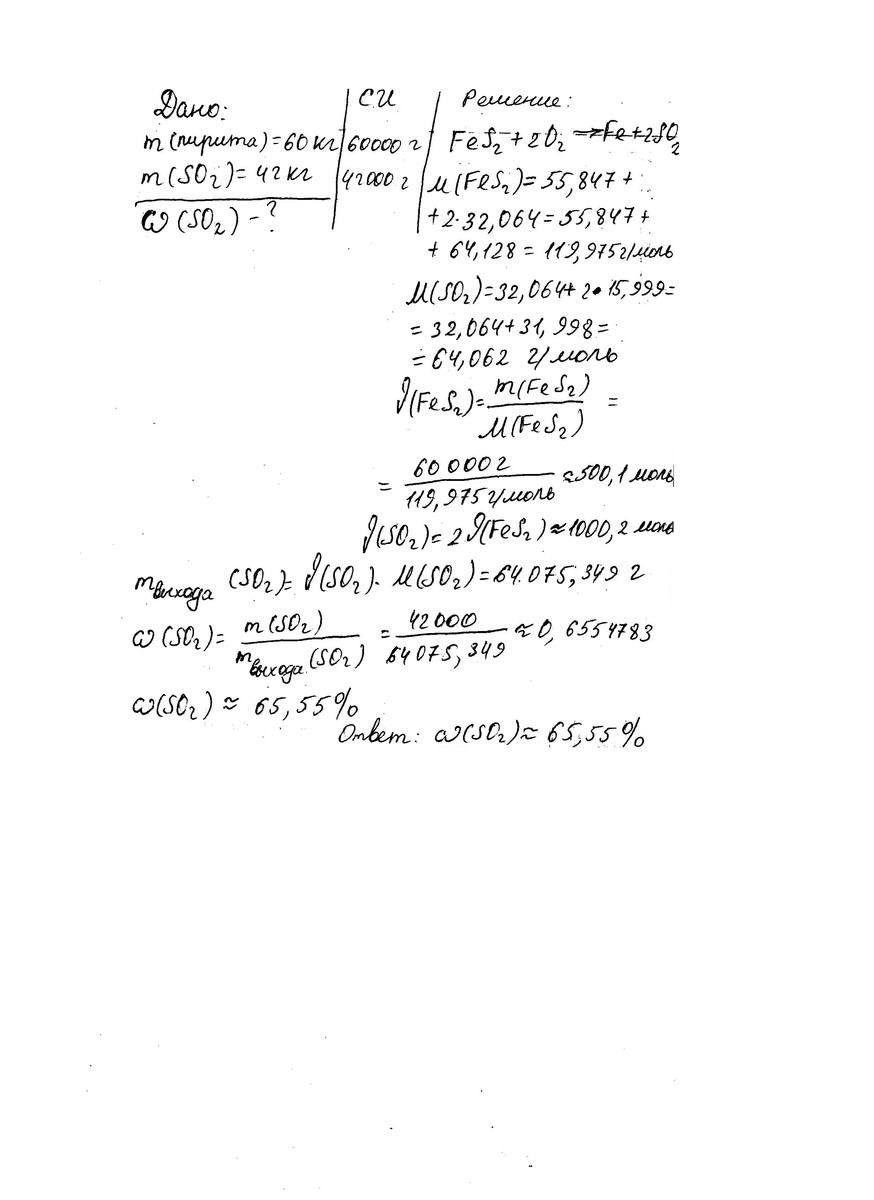 Дано:
m(пирита)=60 кг
m(SO₂)=42 кг
ω(SO₂)-?
СИ
60000 г
42000 г
Решение:
FeS₂+2O₂=>Fe+2SO₂
M(FeS₂)=55,847+
+2·32,064=55,847+
+64,128=119,975 г/моль
M(SO₂)=32,064+2•15,999=
=32,064+31,998=
=64,062 г/моль
ϑ(FeS₂)=m(FeS₂)/M(FeS₂)=
=60000 г/119,975 г/моль≈500,1 моль
ϑ(SO₂)=2ϑ(FeS₂)≈1000,2 моль
m выхода (SO₂)=ϑ(SO₂)·M(SO₂)=64.075,349 г
ω(SO₂)=m(SO₂)/m выхода (SO₂)=42000/64075,349≈0,6554783
ω(SO₂)≈65,55%
Ответ: ω(SO₂)≈65,55%